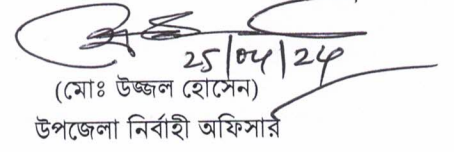 25/04/24
(মোঃ উজ্জল হোসেন)
উপজেলা নির্বাহী অফিসার